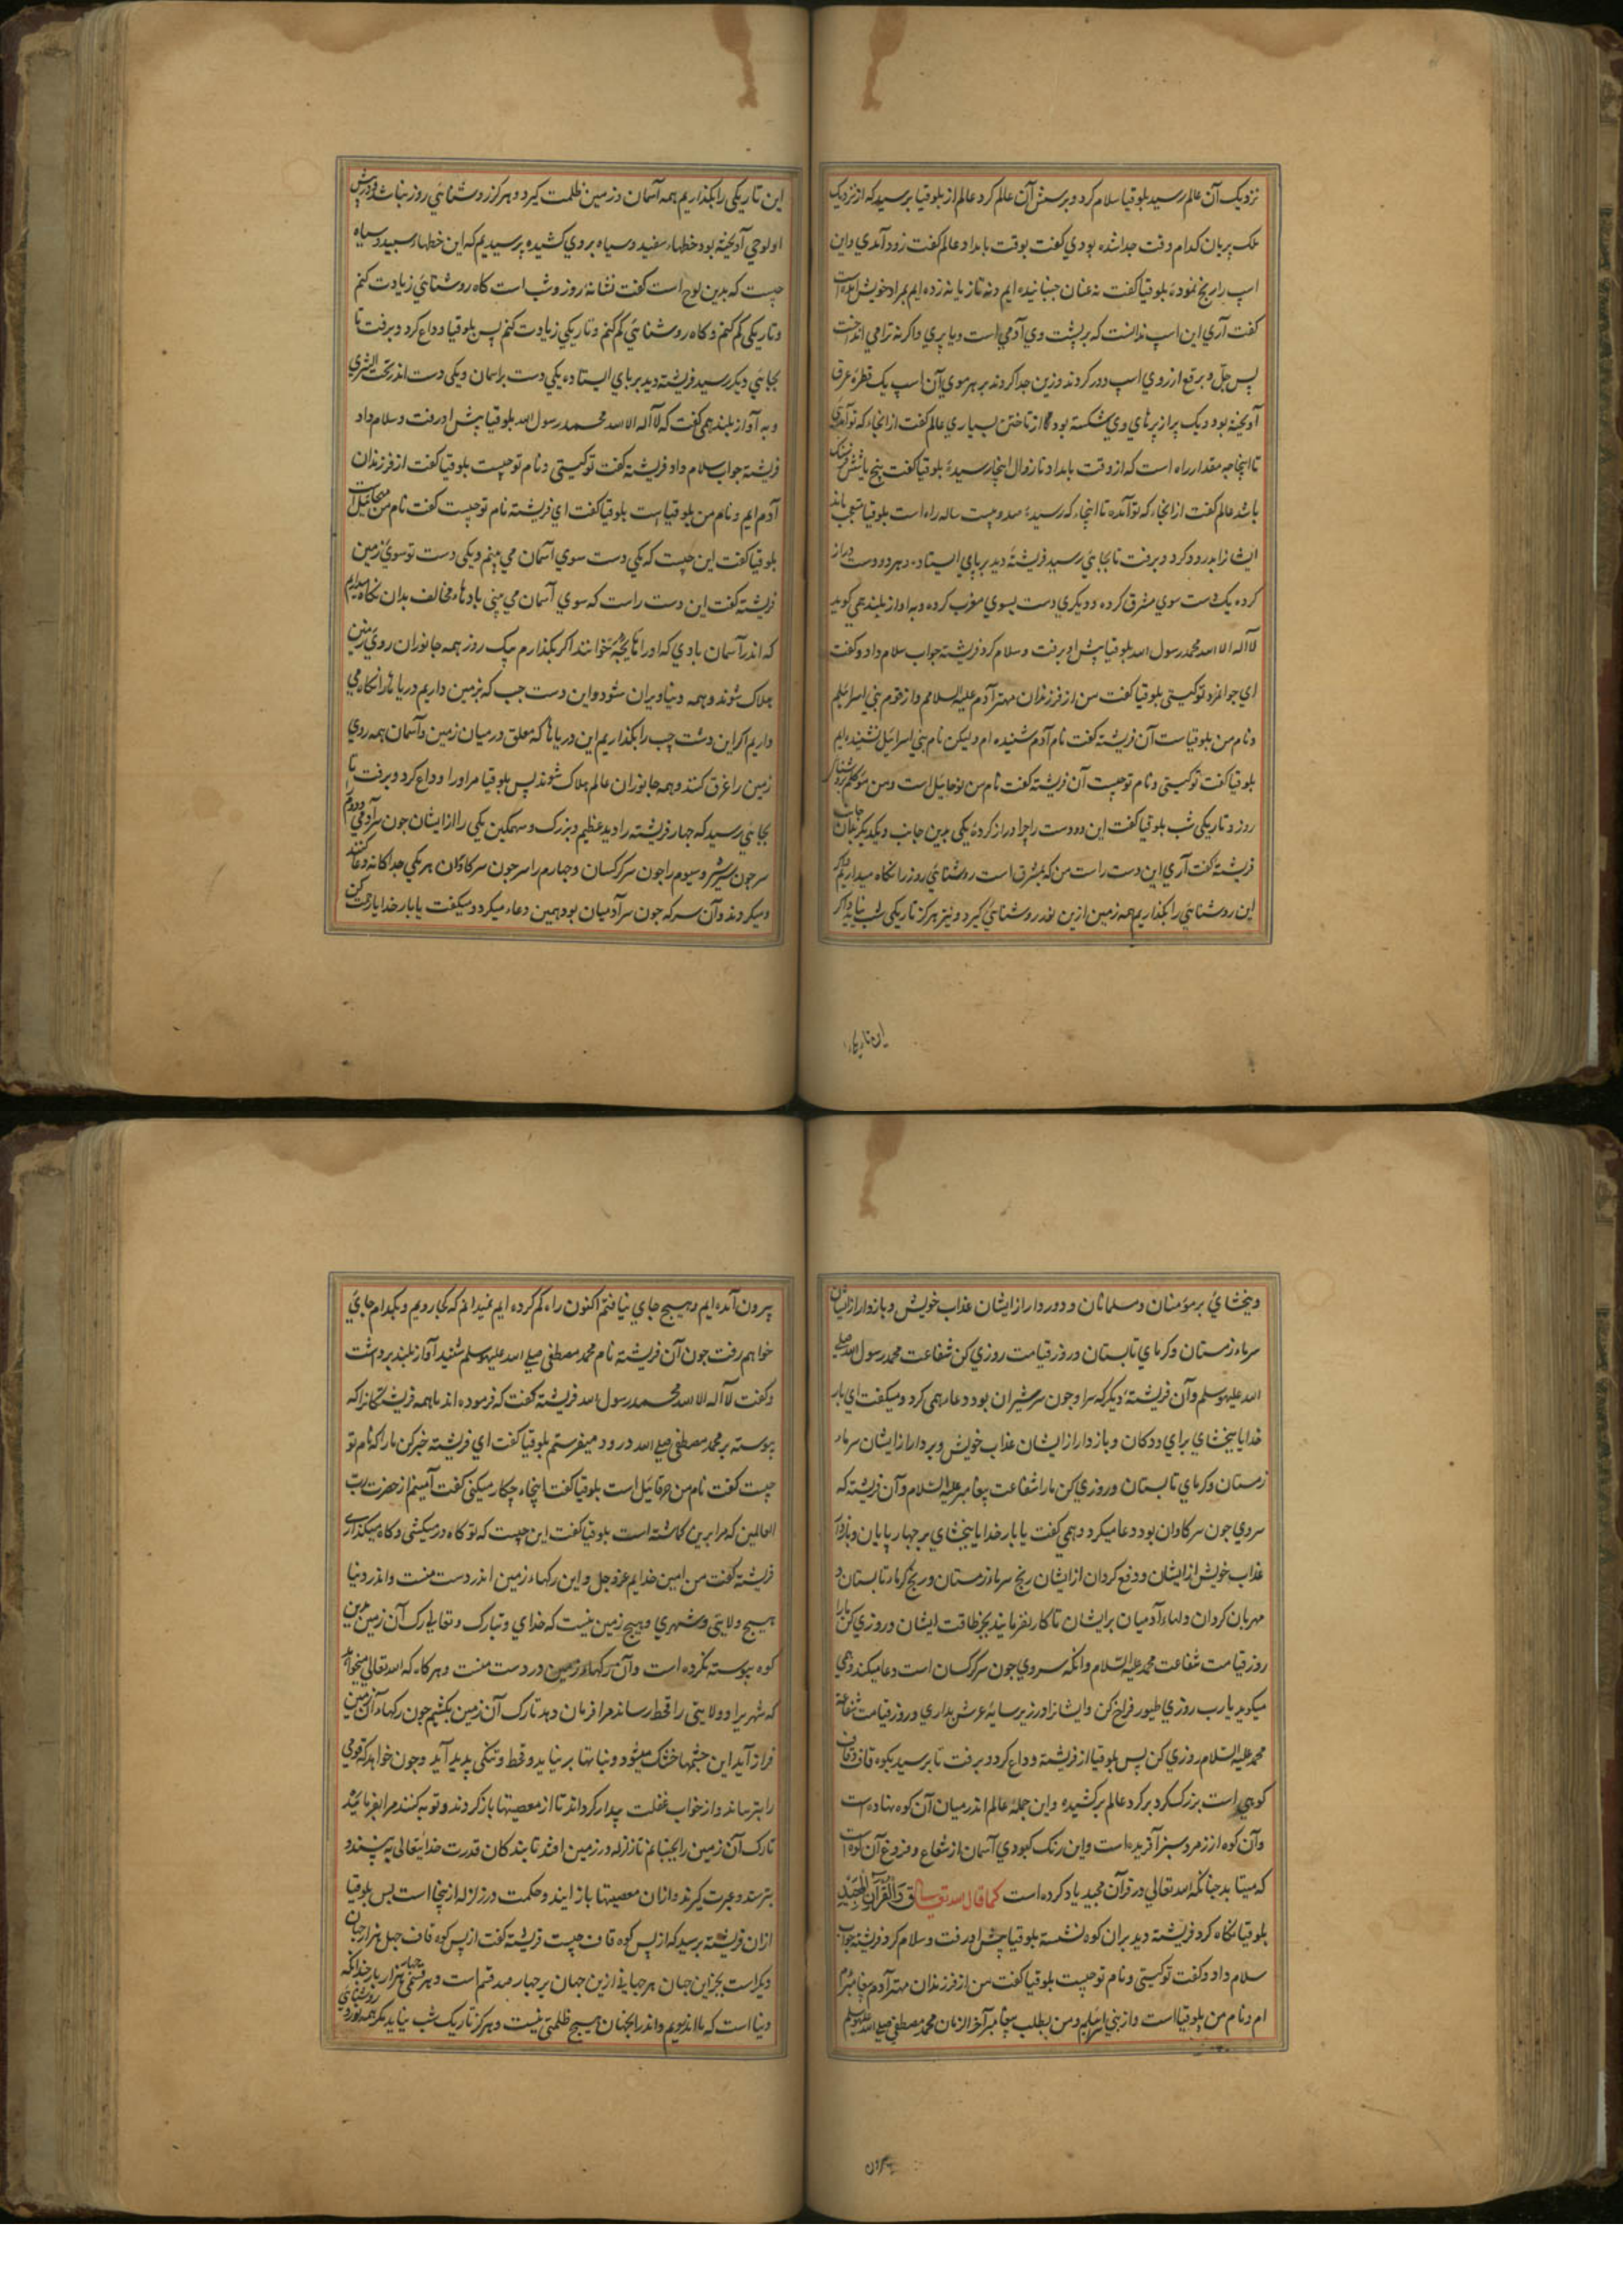 نزدیک آن عالم رسید بلوقیا سلام کرد و پرسش آن عالم کرد عالم از بلوقیا پرسید که از نزدیک
ملک پریان کدام وقت جدا شده بودی گفت بوقت بامداد عالم گفت زود آمدی و این
اسپ را رنج نمودهٔ بلوقیا گفت نه عنان جنبانیده ایم و نه تازیانه زده ایم بمراد خویش آمده است
گفت آری این اسپ ندانست که بر پشت وی آدمی است و یا پری و اگرنه ترا می انداخت
پس جل و برقع از روی اسپ دور کردند و زین جدا کردند بر هر موی آن اسپ یک قطره عرق
آویخته بود و یک پر از پرهای وی شکسته بود از تاختن بسیاری عالم گفت از آنجا که تو آمدی
تا اینجا چه مقدار راه است که از وقت بامداد تا زوال اینجا رسیدهٔ بلوقیا گفت پنج یا شش فرسنگ
باشد عالم گفت از انجا که تو آمده تا اینجا که رسیدهٔ صد و بیست ساله راه است بلوقیا متعجب ماند
ایشانرا بدرود کرد و برفت تا بجائی رسید فریشتهٔ دید برپای ایستاده و هر دو دست دراز
کرده یک دست سوی مشرق کرده و دیگری دست بسوی مغرب کرده و به آواز بلند همی گوید
لا اله الا الله محمد رسول الله بلوقیا پیش او برفت و سلام کرد فریشته جواب سلام داد و گفت
ای جوانمرد تو کیستی بلوقیا گفت من از فرزندان مهتر آدم علیه السلامم و از قوم بنی اسرائیلم
و نام من بلوقیاست آن فریشته گفت نام آدم شنیده ام ولیکن نام بنی اسرائیل نشنیده ایم
بلوقیا گفت تو کیستی و نام تو چیست آن فریشته گفت نام من نوحاییل است و من موکلم بروشنائی
روز و تاریکی شب بلوقیا گفت این دو دست را چرا دراز کردهٔ یکی بدین جانب و دیگر بدیگر جانب
فریشته گفت آری این دست راست من که بمشرق است روشنائی روز را نگاه میداریم و اگر
این روشنائی را بگذاریم همه زمین ازین نور روشنائی گیرد و نیز هرگز تاریکی شب نیاید و اگر
این تاریکی
این تاریکی را بگذاریم همه آسمان و زمین ظلمت گیرد و هرگز روشنائی روز نباشد و در پیش
او لوحی آویخته بود خطهاء سفید و سیاه بروی کشیده پرسیدیم که این خطهاء سپید و سیاه
چیست که بدین لوح است گفت نشانهٔ روز و شب است گاه روشنائی زیادت کنم
و تاریکی کم کنم و گاه روشنائی کم کنم و تاریکی زیادت کنم پس بلوقیا وداع کرد و برفت تا
بجائی دیگر رسید فریشته دید بر پای ایستاده یکی دست بر آسمان و یکی دست اندر تحت الثری
و به آواز بلند همی گفت که لا اله الا الله محمد رسول الله بلوقیا پیش او رفت و سلام داد
فریشته جواب سلام داد فریشته گفت تو کیستی و نام تو چیست بلوقیا گفت از فرزندان
آدم ایم و نام من بلوقیا است بلوقیا گفت ای فریشته نام تو چیست گفت نام من میخائیل است
بلوقیا گفت این چیست که یکی دست سوی آسمان می بینم و یکی دست تو سوی زمین
فریشته گفت این دست راست که سوی آسمان می بینی بادهاء مخالف بدان نگاه میداریم
که اندر آسمان بادی که او را خوانند اگر بگذارم یک روز همه جانوران روی زمین
هلاک شوند و همه دنیا ویران شود و این دست چپ که بزمین داریم دریا ها را نگاه می
داریم اگر این دست چپ را بگذاریم این دریاها که معلق در میان زمین و آسمان همه روی
زمین را غرق کنند و همه جانوران عالم هلاک شوند پس بلوقیا مر او را وداع کرد و برفت تا
بجائی رسید که چهار فریشته را دید عظیم و بزرگ و سهمگین یکی را از ایشان چون سر آدمی دوم
سر چون سر شیر و سیوم را چون سر کرکسان و چهارم را سر چون سر گاوان هر یکی جداگانه دعا
میکردند و آن سر که چون سر آدمیان بود همین دعا میکرد و میگفت یا بار خدایا رحمت کن
و بخشای بر مؤمنان و مسلمانان و دور دار از ایشان عذاب خویش و باز دار از ایشان
سرماء زمستان و گرمای تابستان و روز قیامت روزی کن شفاعت محمد رسول الله صلی
الله علیه وسلم و آن فریشتهٔ دیگر که سر او چون سر شیران بود دعا همی کرد و میگفت ای بار
خدایا ببخشای برای ددگان و باز دار از ایشان عذاب خویش و بردار از ایشان سرماء
زمستان و گرمای تابستان و روزی کن ما را شفاعت پیغامبر علیه السلام و آن فریشته که
سر وی چون سر گاوان بود دعا میکرد و همی گفت یا بار خدایا ببخشای بر چهارپایان و بازدار
عذاب خویش از ایشان و دفع گردان از ایشان رنج سرماء زمستان و رنج گرماء تابستان و
مهربان گردان دلهاء آدمیان بر ایشان تا کار نفرمایند بجز طاقت ایشان و روزی کن ما را
روز قیامت شفاعت محمد علیه السلام و آنکه سر وی چون سر کرکسان است دعا میکند و همی
میگوید یا رب روزی طیور فراخ کن و ایشانرا در زیر سایهٔ عرش بداری و روز قیامت شفاعت
محمد علیه السلام روزی کن پس بلوقیا از فریشته وداع کرد و برفت تا برسید بکوه قاف و قاف
کوهی است بزرگ گرد بر گرد عالم برکشیده و این جمله عالم اندر میان آن کوه نهاده است
و آن کوه از زمرد سبز آفریده است و این رنگ کبودی آسمان از شعاع و فروغ آن کوه است
که میتابد چنانکه الله تعالی در قرآن مجید یاد کرده است کما قال الله تعالی ق وَالْقُرْآنِ الْمَجِیدِ
بلوقیا نگاه کرد فریشته دید بران کوه نشسته بلوقیا پیش او رفت و سلام کرد فریشته جواب
سلام داد و گفت تو کیستی و نام تو چیست بلوقیا گفت من از فرزندان مهتر آدم پیغامبرم
ام و نام من بلوقیا است و از بنی اسرائیلم و من بطلب پیغامبر آخر الزمان محمد مصطفی صلی الله علیه وسلم
بیرون
بیرون آمده ایم و هیچ جای نیافتم اکنون راه گم کرده ایم نمیدانم که کجا رویم و بکدام جای
خواهم رفت چون آن فریشته نام محمد مصطفی صلی الله علیه وسلم شنید آواز بلند برداشت
و گفت لا اله الا الله محمد رسول الله فریشته گفت که فرموده اند ما همه فریشتگانرا که
پیوسته بر محمد مصطفی صلی الله درود میفرستم بلوقیا گفت ای فریشته خبر کن ما را که نام تو
چیست گفت نام من حرقائیل است بلوقیا گفت اینجا چکار میکنی گفت آمینم از حضرت رب
العالمین که مرا برین گماشته است بلوقیا گفت این چیست که تو گاه در میکشی و گاه میگذاری
فریشته گفت من امین خدایم عز و جل و این رگهاء زمین اندر دست منست و اندر دنیا
هیچ ولایتی و شهری و هیچ زمین نیست که خدای و تبارک و تعالی تارک آن زمین بدین
کوه پیوسته نکرده است و آن رگهاء زمین در دست منست و هر گاه که الله تعالی میخواهد
که شهر یرا و ولایتی را قحط رساند مرا فرمان دهد تا رگ آن زمین بکشیم چون رگهاء آن زمین
فراز آید این چشمها خشک میشود و نباتها بر نیاید و قحط و تنگی پدید آید و چون خواهد که قومی
را بترساند و از خواب غفلت بیدار گرداند تا از معصیتها باز گردند و توبه کنند مرا بفرماید
تا رگ آن زمین را بجنبانم تا زلزله در زمین افتد تا بندگان قدرت خدایتعالی به بینند و
بترسند و عبرت گیرند و ازان معصیتها باز ایند و حکمت در زلزله از ینجا است پس بلوقیا
ازان فریشته پرسید که از پس کوه قاف چیست فریشته گفت از پس کوه قاف چهل هزار جهان
دیگر است بجز این جهان هر جهانی ازین جهان بر چهار صد قسم است و هر قسمی چهار هزار بار چندانکه
دنیا است که ما اندرویم و اندران جهان هیچ ظلمتی نیست و هرگز تاریک شب نیاید مگر همه نور و روشنایی